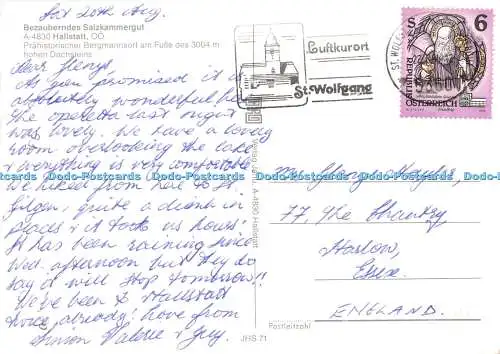 Sat 20th Aug.
Bezauberndes Salzkammergut
A-4830 Hallstatt, OÖ
Prähistorischer Bergmannsort am Fuße des 3004 m
hohen Dachsteins
Dear
As you promised it is
absolutely wonderful here
the operetta last night
was lovely. We have a lovely
room overlooking the lake
& everything is very comfortable
We hiked from here to St.
Gilgen, quite a climb in
places & it took us hours!
It has been raining since
Wed. afternoon but they do
say it will stop tomorrow!!
We've been to Hallstatt
twice already! Love from
Simon Valerie &
Luftkurort
St. Wolfgang
6
REPUBLIK
ÖSTERREICH
77, The Chantry
Harlow,
Essex.
ENGLAND.
Postleitzahl
JHS 71
A-4830 Hallstatt
Postcards Postcards Postcards Postcards